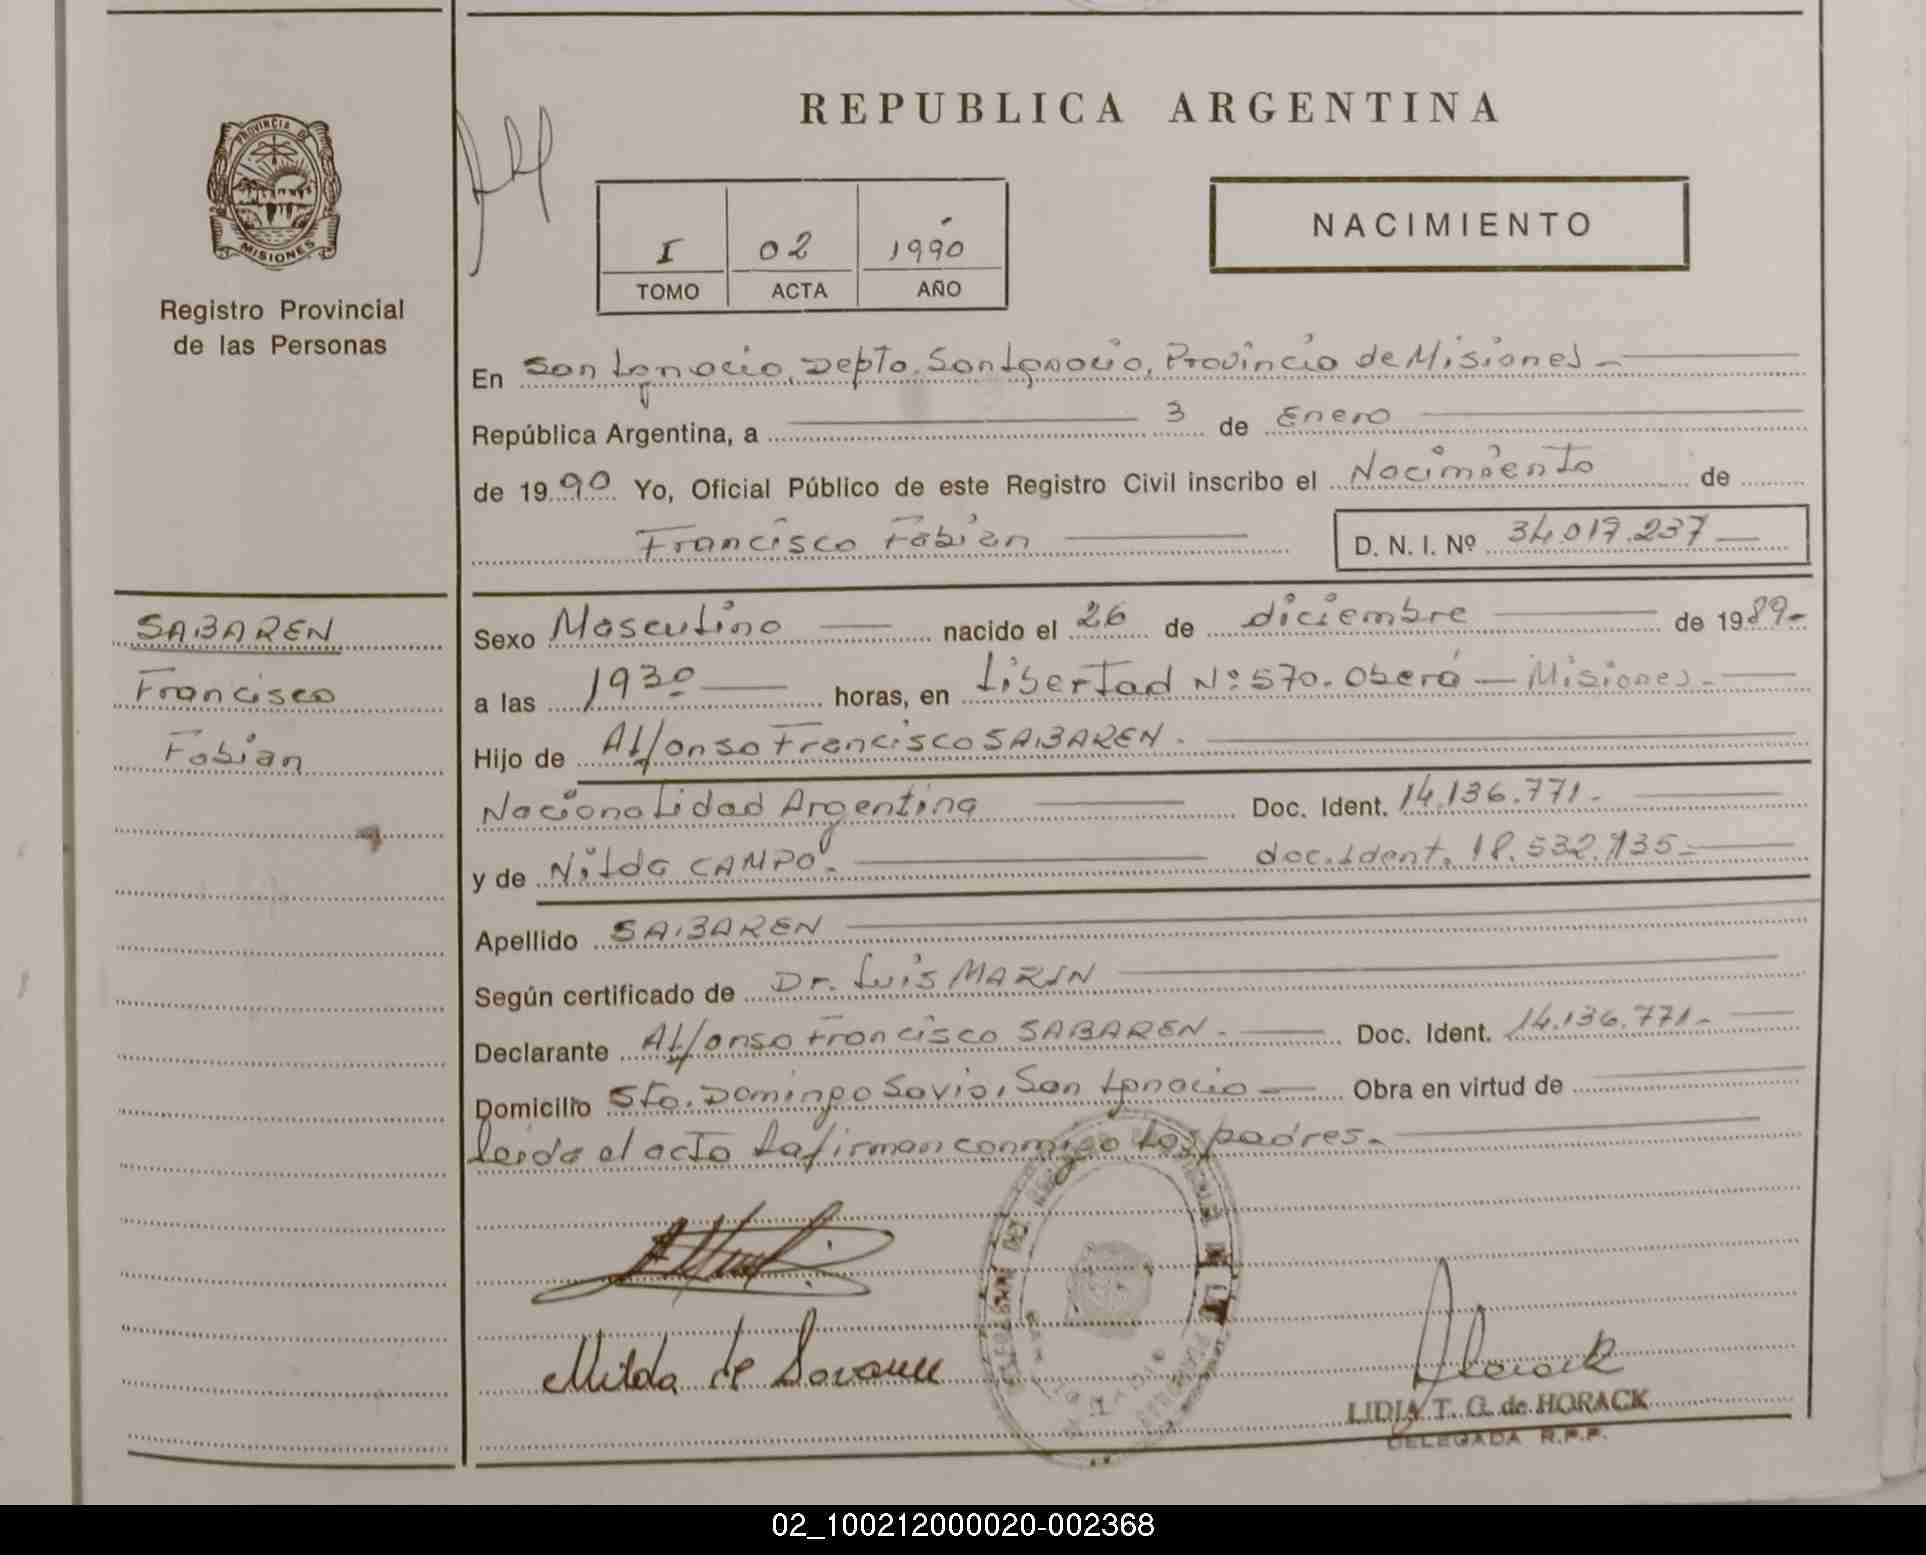 REPUBLICA ARGENTINA
PROVINCIA DE
MISIONES
Registro Provincial
de las Personas
I 02 1990
TOMO ACTA AÑO
NACIMIENTO
En San Ignacio, Depto. San Ignacio, Provincia de Misiones.-
República Argentina, a 3 de Enero
de 1990 Yo, Oficial Público de este Registro Civil inscribo el Nacimiento de
Francisco Fabian D. N. I. Nº 34.017.237
SABAREN
Francisco
Fabian
Sexo Masculino nacido el 26 de diciembre de 1989-
a las 1930 horas, en Libertad Nº 570. Oberá - Misiones.-
Hijo de Alfonso Francisco SABAREN.
Nacionalidad Argentina Doc. Ident. 14.136.771.-
y de Nilda CAMPO.- doc. Ident. 18.532.935.-
Apellido SABAREN
Según certificado de Dr. Luis MARIN
Declarante Alfonso Francisco SABAREN.- Doc. Ident. 14.136.771.-
Domicilio Sto. Domingo Savio, San Ignacio Obra en virtud de
leida el acta la firman conmigo los padres.-
Nilda de
LIDIA T. G. de HORACK
DELEGADA R.P.P.
02_100212000020-002368